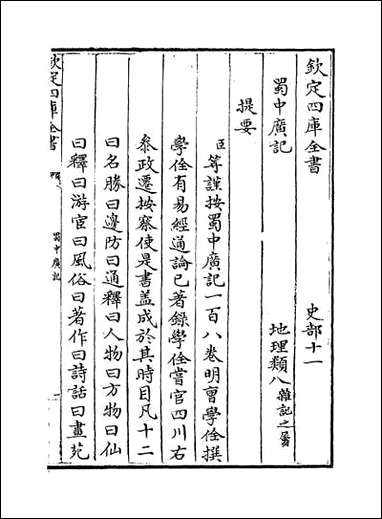 欽定四庫全書
史部十一
蜀中廣記
地理類八雜記之屬
提要
臣等謹按蜀中廣記一百八卷明曹學佺撰
學佺有易經通論已著錄學佺嘗官四川右
叅政遷按察使是書葢成於其時目凡十二
曰名勝曰邊防曰通釋曰人物曰方物曰仙
曰釋曰游宦曰風俗曰著作曰詩話曰畫苑
欽定四庫全書
蜀中廣記
一